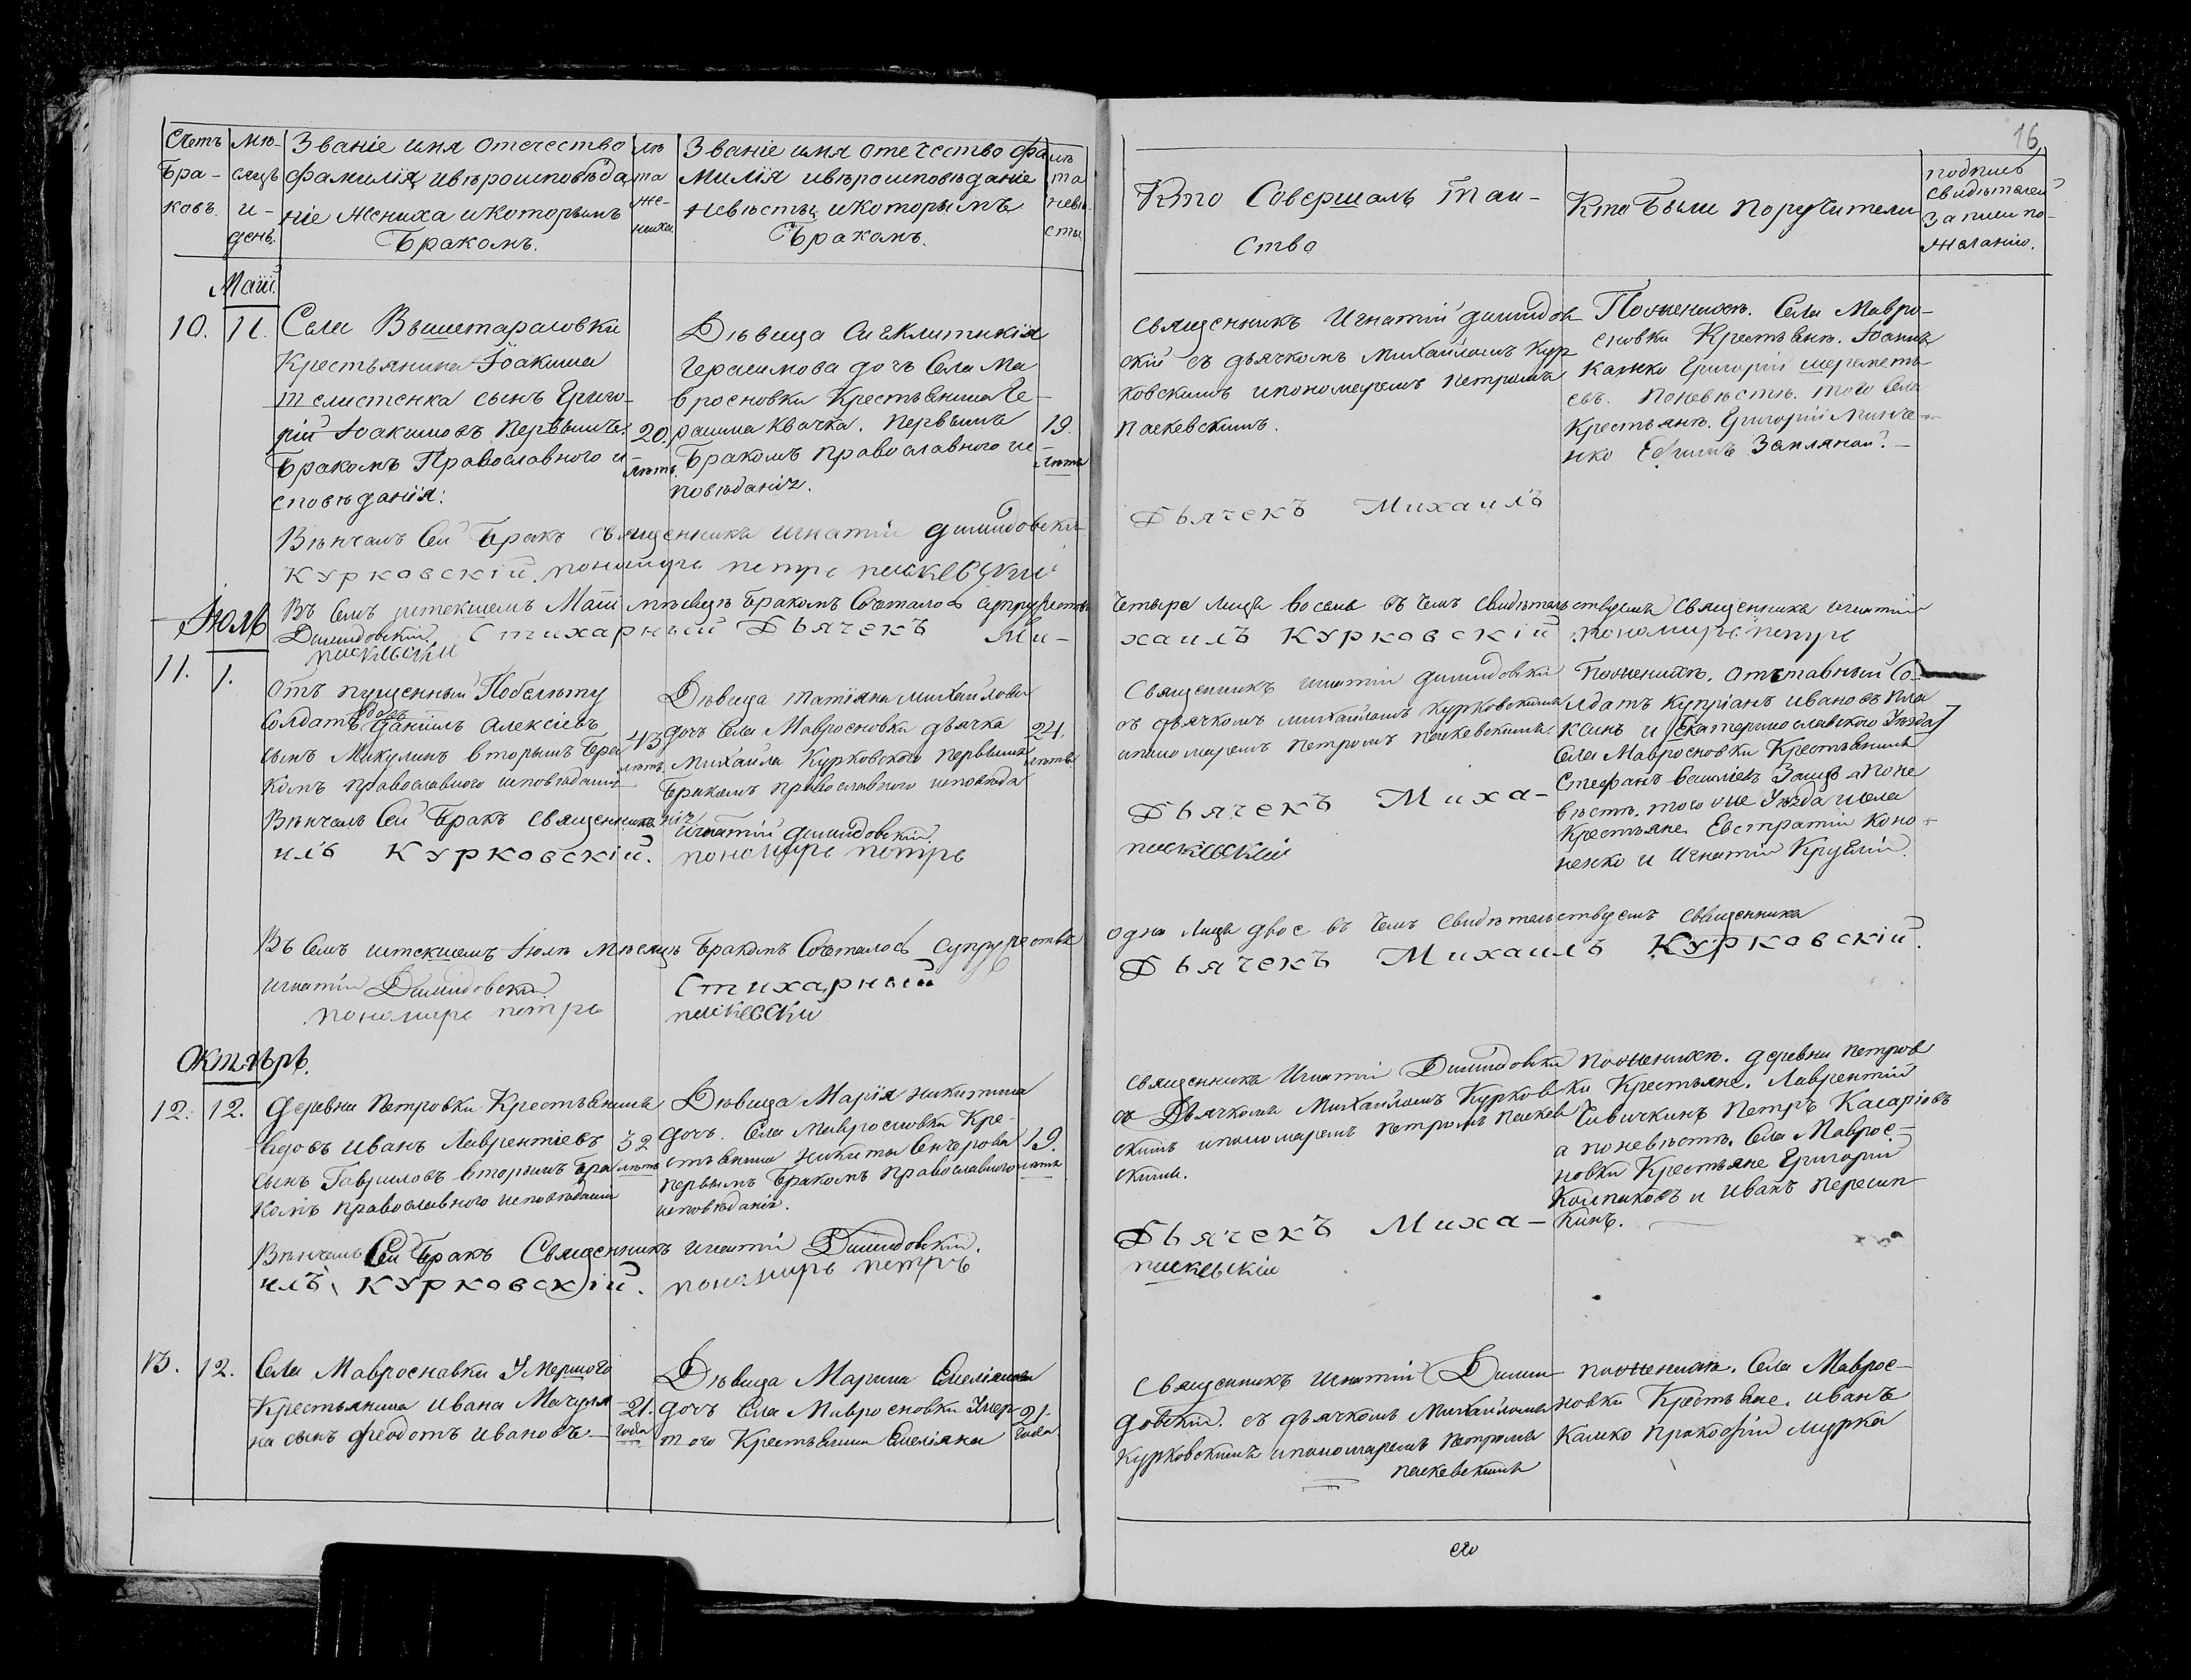 Счетъ
Бра-
ковъ.
Мѣ-
сяцъ
и-
день.
Званіе имя отечество
фамилія, ивѣроисповѣда
ніе Жениха икоторымъ
Бракомъ.
лѣ
та
же-
ниха.
Званіе имя отечество фа
милія ивѣроисповѣданіе
невѣсты, икоторымъ
Бракомъ.
лѣ
та
невѣ
сты
Маій
10. 11.
Села Вышетарасовки
Крестьянина Іоакима
Телистенка сынъ Григо-
рій Іоакимовъ Первымъ
Бракомъ Православного и-
сповѣданія.
20.
лѣтъ.
Дѣвица Сигклитикія
Герасимова дочь Села Ма
вросновки Крестьянина Ге-
расима Квачка. первымъ
Бракомъ православного ис-
повѣданія.
19.
лѣтъ
Вѣнчалъ Сей Бракъ священникъ игнатій Димидовскій
Курковскій. пономарь петръ паскевскій
Въ Семъ истекшемъ Маіи мѣсяцѣ Бракомъ Сочеталось супружествъ
Димидовскій. Стихарный Дьячекъ Ми-
паскевскій
Іюль
11. 1.
Отъ пущенный Побелѣту
Солдатъ вдовъ Даніилъ Алексіевъ
сынъ Микулинъ вторымъ Бра
комъ православного исповѣданія
43
лѣтъ.
Дѣвица татіяна михайлова
дочь Села Мавросновки дьячка
Михайла Курковского первымъ
Бракомъ православного исповѣда
нія
24.
лѣтъ
Вѣнчалъ Сей Бракъ священникъ игнатій Димидовскій.
илъ Курковскій. пономарь петръ
Въ Семъ истекшемъ Іюлѣ мѣсяцѣ Бракомъ Сочеталось супружества
игнатій Димидовскій. Стихарный
пономарь петръ паскевскій
Октябрь.
12. 12.
Деревни Петровки Крестьянинъ
вдовъ Иванъ Лаврентіевъ
сынъ Гавриловъ вторымъ Бра
комъ православного исповѣданія
32
лѣтъ
Дѣвица Марія никитина
дочь. Села мавросновки Кре-
стьянина никиты
первымъ Бракомъ православного
исповѣданія.
19.
лѣтъ
Вѣнчалъ Сей Бракъ Священникъ игнатій Димидовскій.
илъ Курковскій. пономарь петръ
13. 12.
Села Мавросновки Умершого
Крестьянина Ивана
на сынъ феодотъ Ивановъ
21.
года
Дѣвица Марина Емеліянова
дочь Села Мавросновки Умер-
того Крестьянина Емеліяна
21.
года
16
Кто Совершалъ таи-
ство
Кто Были поручители
подпись
свидѣтелей
записи по-
желанію.
священникъ Игнатій димидов
скій съ дьячкомъ михайломъ Кур
ковскимъ ипономаремъ петромъ
паскевскимъ.
Поженихѣ. Села Мавро-
сновки Крестьянѣ. Іоаннъ
Калко Григорій шереметь
евъ. поневѣстѣ. того Села
Крестьянѣ. Григорій Линче-
нко Ефимъ Заплякай.
Дьячекъ Михаилъ
Четыре Лицъ восемь въ чемъ свидѣтельствуемъ Священникъ игнатій
хаилъ Курковскій пономарь петръ
Священникъ игнатій димидовскій
съ дьячкомъ михайломъ курковскимъ
ипономаремъ петромъ паскевскимъ.
Поженихѣ. отставный Со-
лдатъ Купріанъ ивановъ Пла
ксинъ и Екатеринославского Уѣзда
Села Мавросновки Крестьянинъ
Стефанъ Василіевъ Заицъ а поне
вѣстѣ, того же Уѣзда исела
Крестьяне Евстратій Коно-
ненко и Игнатій Круглій.
Дьячекъ Миха-
паскевскій
одно Лицъ двое въ чемъ Свидѣтельствуемъ священникъ
Дьячекъ Михаилъ Курковскій.
священникъ Игнатій Димидовскій
съ Дьячкомъ Михайломъ Курков
скимъ ипономаремъ петромъ паскев
скимъ.
поженихѣ. деревни петров
ки Крестьяне. Лаврентій
Чивичкинъ Петръ Касаріовъ
а поневѣстѣ. Села Маврос-
новки Крестьяне Григорій
Колпаковъ и Иванъ пересып-
кинъ.
Дьячекъ Миха-
паскевскій
Священникъ игнатій Дими-
довскій. съ дьячкомъ Михайломъ
Курковскимъ ипономаремъ петромъ
паскевскимъ
поженихѣ. Села Маврос-
новки Крестьяне. иванъ
Калко прокофій мурка